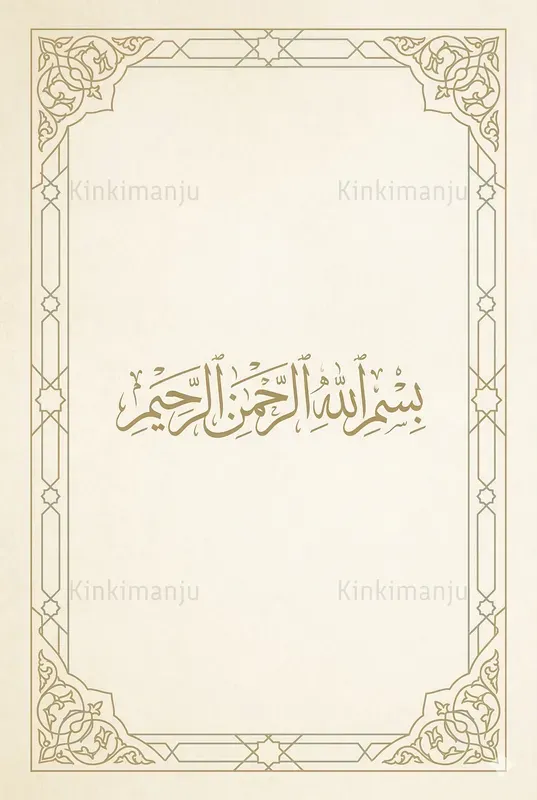 Kinkimanju Kinkimanju
بِسْمِ ٱللَّهِ ٱلرَّحْمَٰنِ ٱلرَّحِيمِ
Kinkimanju Kinkimanju